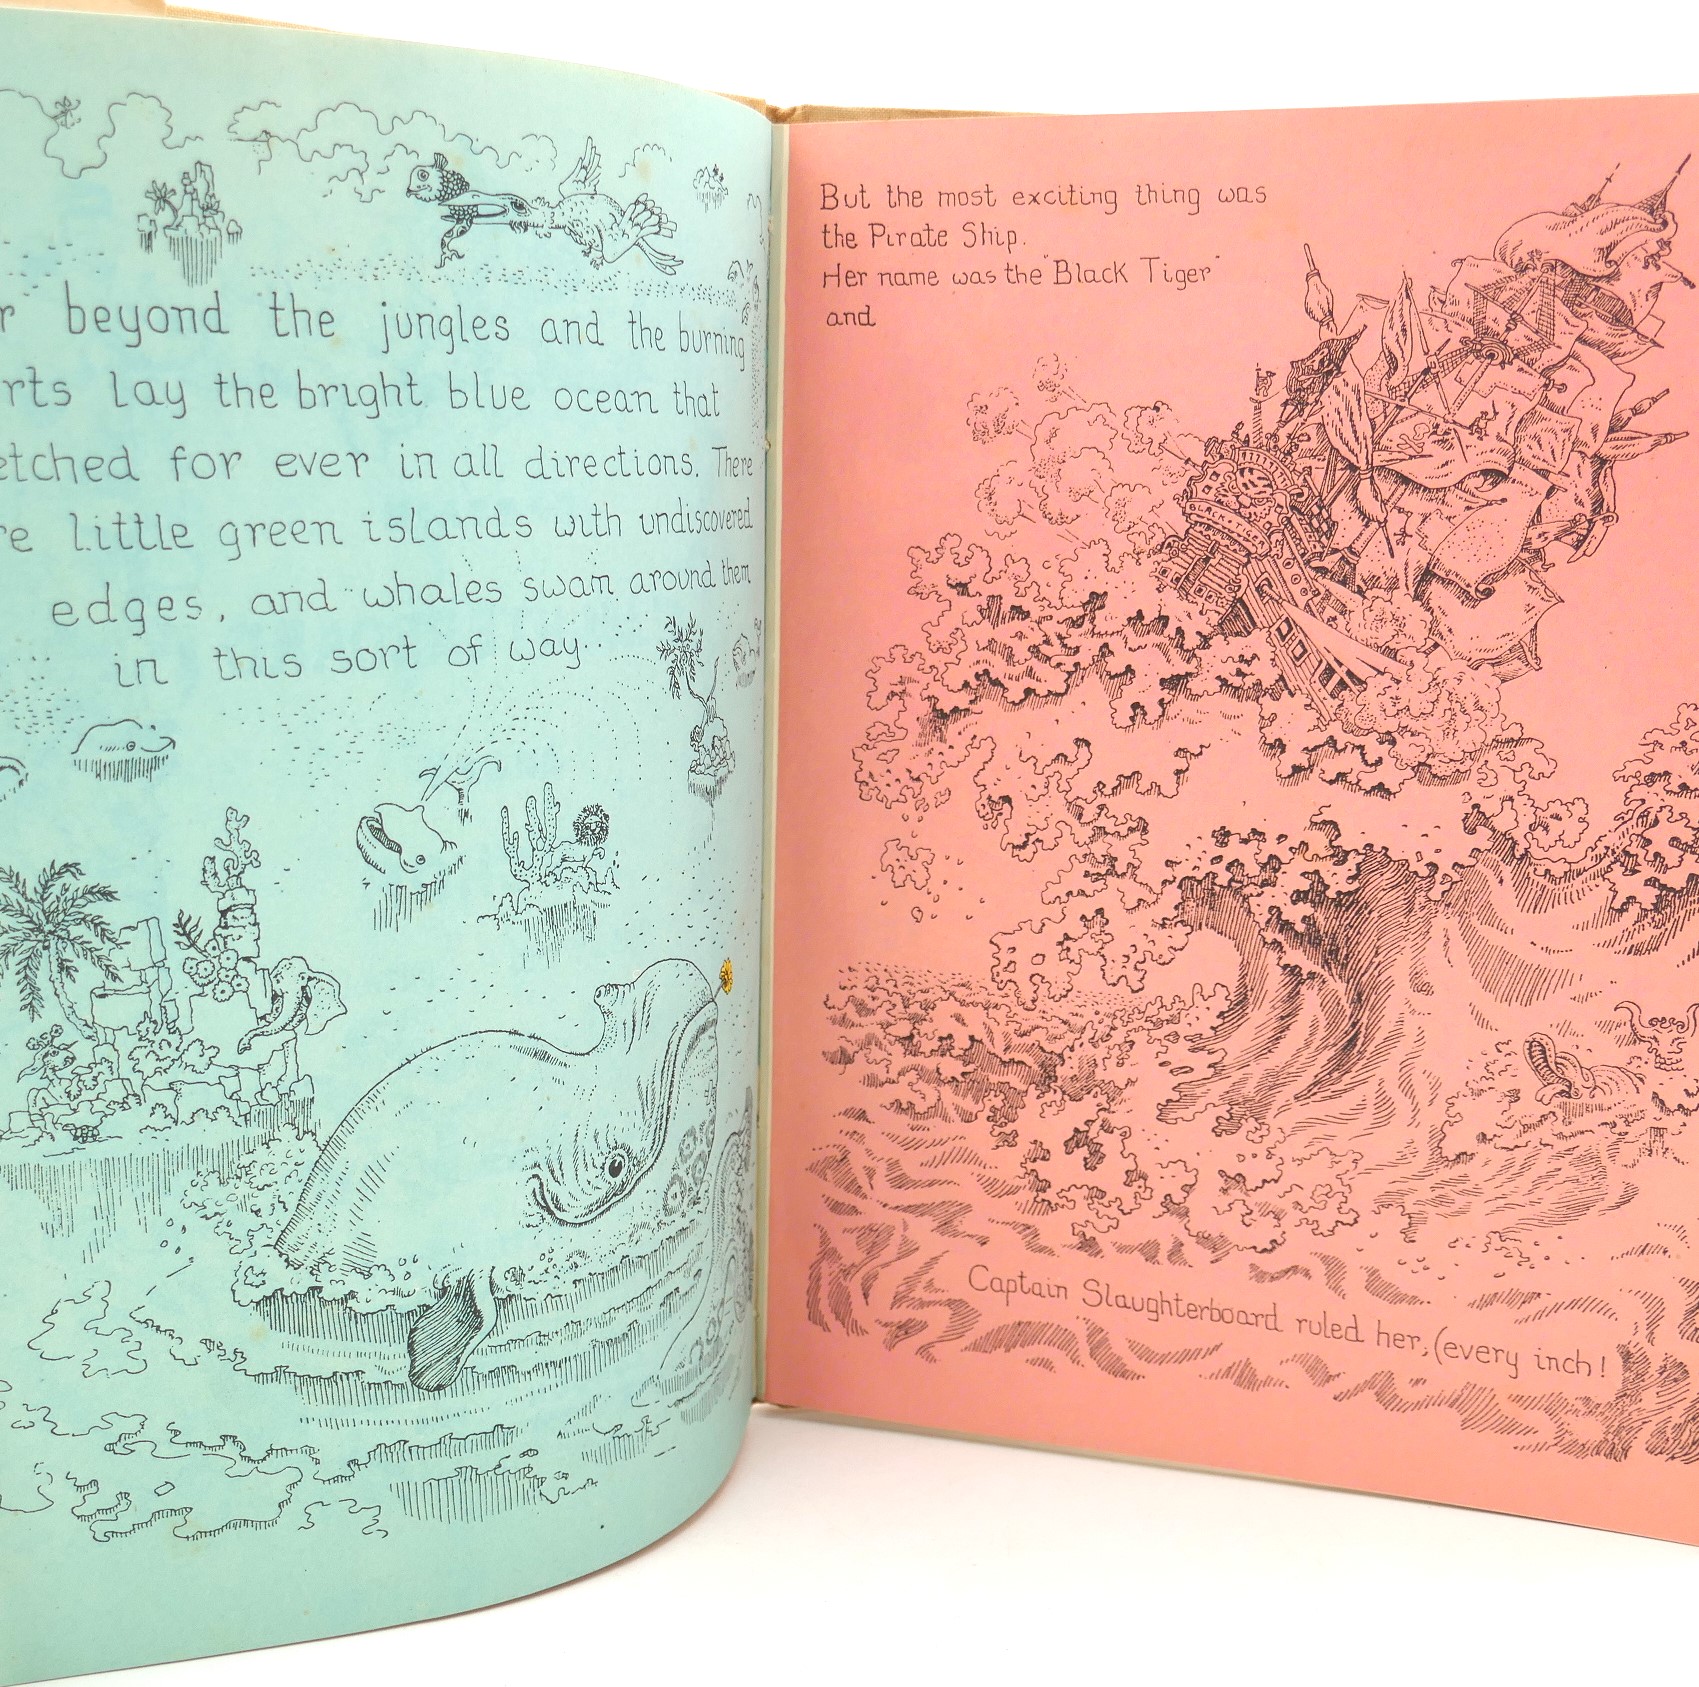 r beyond the jungles and the burning
rts lay the bright blue ocean that
etched for ever in all directions. There
re little green islands with undiscovered
edges, and whales swam around them
in this sort of way.
But the most exciting thing was
the Pirate Ship.
Her name was the "Black Tiger"
and
BLACK • TIGER
Captain Slaughterboard ruled her, (every inch!